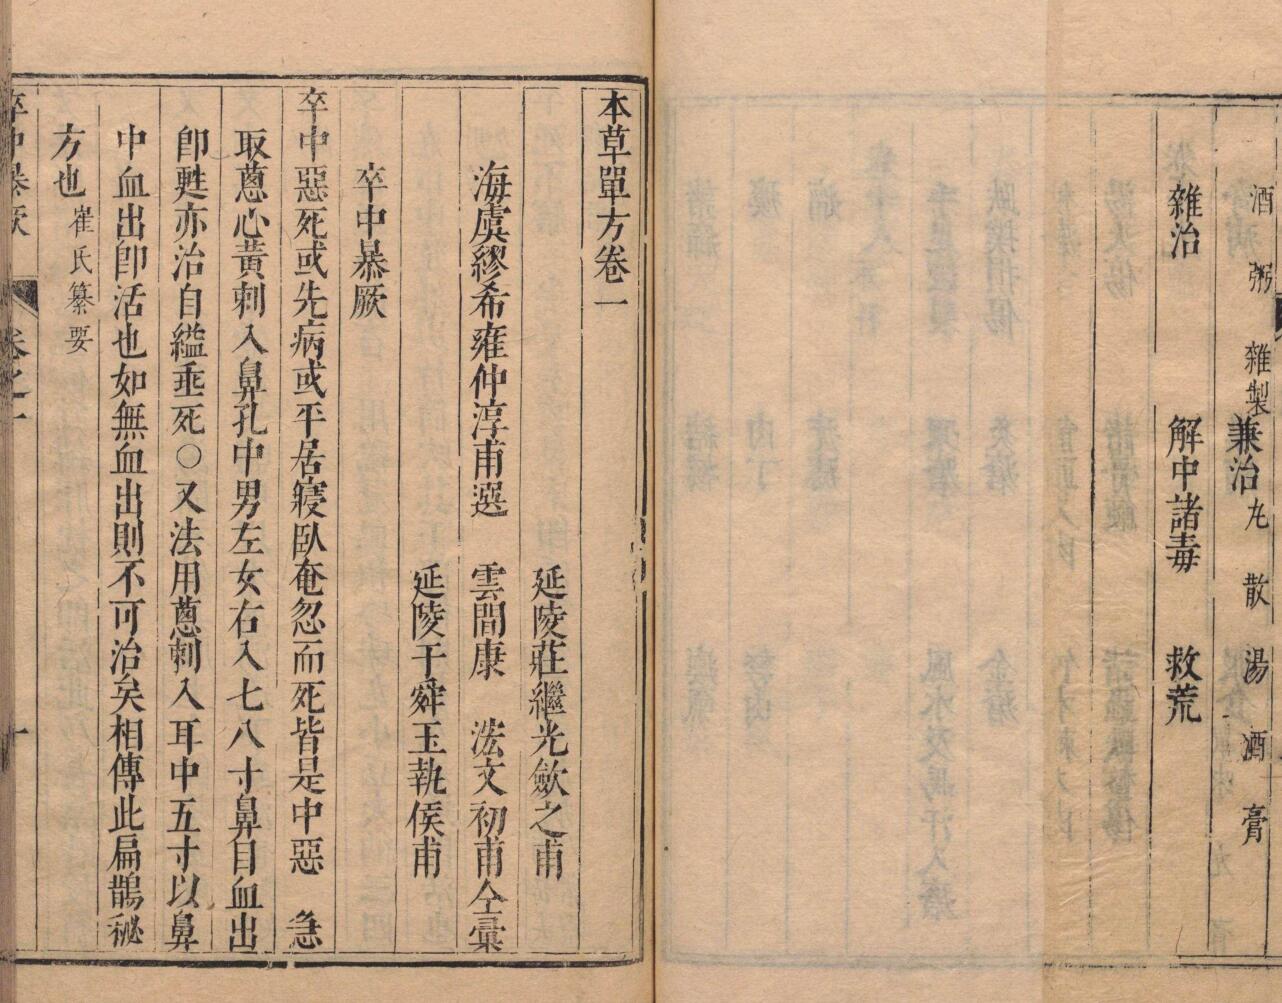 酒 粥 雜製
兼治 丸 散 湯 酒 膏
雜治 解中諸毒 救荒
本草單方卷一
延陵莊繼光斂之甫
海虞繆希雍仲淳甫選 雲間康 浤文初甫仝彙
延陵于舜玉執侯甫
卒中暴厥
卒中惡死或先病或平居寢臥奄忽而死皆是中惡 急
取蔥心黃刺入鼻孔中男左女右入七八寸鼻目血出
卽甦亦治自縊垂死○又法用蔥刺入耳中五寸以鼻
中血出卽活也如無血出則不可治矣相傳此扁鵲秘
方也 崔氏纂要
卒中暴厥 卷之一 一